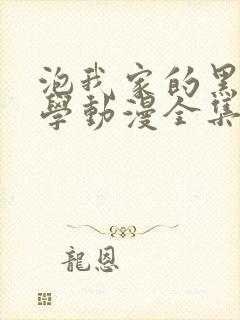 泡我家的黑
學動漫全集
龍恩